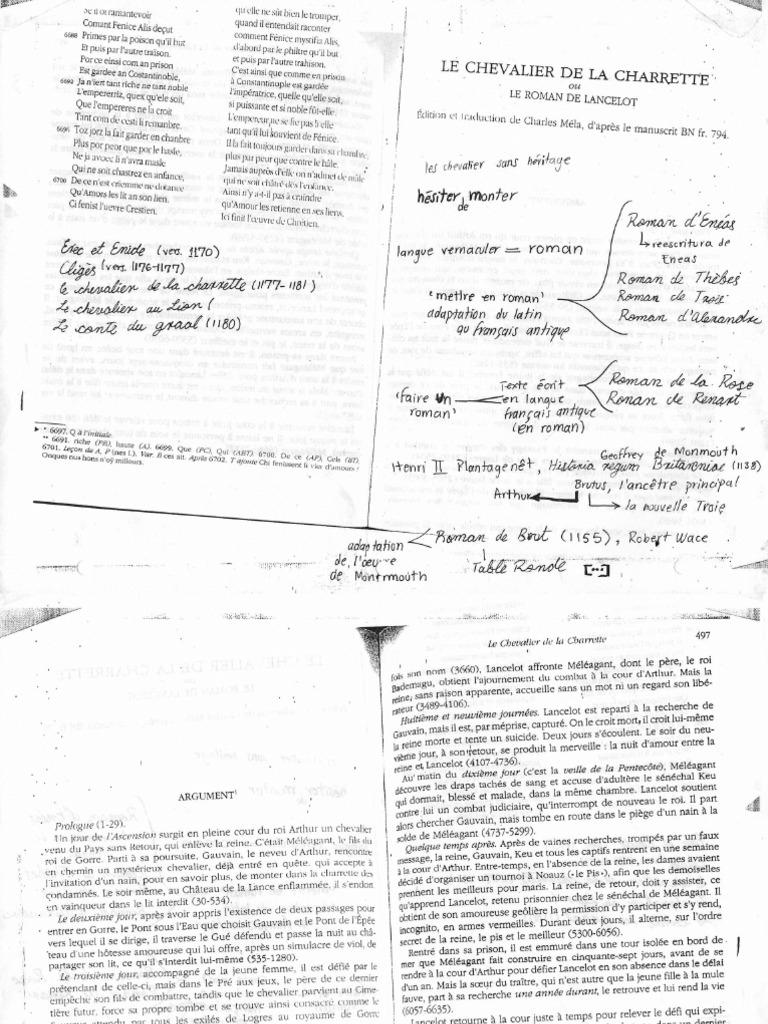 Comant Fenice Alis deçut
6688 Primes par la poison qu'il but
Et puis par l'autre traïson.
Por ce einsi com an prison
Est gardee an Costantinoble,
6692 Ja n'iert tant riche ne tant noble
L'empererriz, quex qu'ele soit,
Que l'empereres ne la croit
Tant com de cesti li remanbre.
6696 Toz jorz la fait garder en chanbre
Plus por peor que por le hasle,
Ne ja avoec li n'avra masle
Qui ne soit chastrez en anfance,
6700 De ce n'est criemme ne dotance
Qu'Amors les lit an son lien.
Ci fenist l'uevre Crestien.
qu'elle ne sût bien le tromper,
quand il entendait raconter
comment Fénice mystifia Alis,
d'abord par le philtre qu'il but
et puis par l'autre trahison.
C'est ainsi que comme en prison
à Constantinople est gardée
l'impératrice, quelle qu'elle soit,
si puissante et si noble fût-elle.
L'empereur ne se fie pas à elle
tant qu'il lui souvient de Fénice.
Il la fait toujours garder dans sa chambre,
plus par peur que contre le hâle.
Jamais auprès d'elle on n'admet de mâle
qui ne soit châtré dès l'enfance.
Ainsi n'y a-t-il pas à craindre
qu'Amour les retienne en ses liens.
Ici finit l'œuvre de Chrétien.
Erec et Enide (vers. 1170)
Cligès (vers 1176-1177)
Le chevalier de la charrette (1177-1181)
Le chevalier au Lion (
Le conte du graal (1180)
* 6697. Q à l'initiale.
** 6691. riche (PR), hausse (A). 6699. Que (PC), Qui (ABT). 6700. De ce (AP), Cels (BT)
6701. Leçon de A, P (nes l.). Var. B ces ait. Après 6702. T ajoute Chi fenissent li vier d'amours /
Onques nus bons n'oï millours.
LE CHEVALIER DE LA CHARRETTE
ou
LE ROMAN DE LANCELOT
Édition et traduction de Charles Méla, d'après le manuscrit BN fr. 794.
les chevalier sans héritage
hésiter de monter
langue vernaculer = roman
'mettre en roman'
adaptation du latin
au français antique
Roman d'Enéas
↳ reescritura de
Eneas
Roman de Thèbes
Roman de Troie
Roman d'Alexandre
'faire un
roman'
Texte écrit
en langue
français antique
(en roman)
Roman de la Rose
Roman de Renart
Geoffrey de Monmouth
Henri II Plantagenêt, Historia regum Britanniae (1138)
Brutus, l'ancêtre principal
Arthur
↳ la nouvelle Troie
adaptation
de l'œuvre
de Montmouth
Roman de Brut (1155), Robert Wace
Table Ronde [...]
ARGUMENT
Prologue (1-29).
Un jour de l'Ascension surgit en pleine cour du roi Arthur un chevalier
venu du Pays sans Retour, qui enlève la reine. C'était Méléagant, le fils du
roi de Gorre. Parti à sa poursuite, Gauvain, le neveu d'Arthur, rencontre
en chemin un mystérieux chevalier, déjà entré en quête, qui accepte à
l'invitation d'un nain, pour en savoir plus, de monter dans la charrette des
condamnés. Le soir même, au Château de la Lance enflammée, il s'endort
en vainqueur dans le lit interdit (30-534).
Le deuxième jour, après avoir appris l'existence de deux passages pour
entrer en Gorre, le Pont sous l'Eau que choisit Gauvain et le Pont de l'Épée
vers lequel il se dirige, il traverse le Gué défendu et passe la nuit au châ-
teau d'une hôtesse amoureuse qui lui offre, après un simulacre de viol, de
partager son lit, ce qu'il s'interdit lui-même (535-1280).
Le troisième jour, accompagné de la jeune femme, il est défié par le
prétendant de celle-ci, mais dans le Pré aux jeux, le père de ce dernier
empêche son fils de combattre, tandis que le chevalier parvient au Cime-
tière futur, force sa propre tombe et se trouve ainsi consacré comme le
par tous les exilés de Logres au royaume de Gorre
Le Chevalier de la Charrette
497
fois son nom (3660), Lancelot affronte Méléagant, dont le père, le roi
Bademagu, obtient l'ajournement du combat à la cour d'Arthur. Mais la
reine, sans raison apparente, accueille sans un mot ni un regard son libé-
rateur (3489-4106).
Huitième et neuvième journées. Lancelot est reparti à la recherche de
Gauvain, mais il est, par méprise, capturé. On le croit mort, il croit lui-même
la reine morte et tente un suicide. Deux jours s'écoulent. Le soir du neu-
vième jour, à son retour, se produit la merveille : la nuit d'amour entre la
reine et Lancelot (4107-4736).
Au matin du dixième jour (c'est la veille de la Pentecôte), Méléagant
découvre les draps tachés de sang et accuse d'adultère le sénéchal Keu
qui dormait, blessé et malade, dans la même chambre. Lancelot soutient
contre lui un combat judiciaire, qu'interrompt de nouveau le roi. Il part
alors chercher Gauvain, mais tombe en route dans le piège d'un nain à la
solde de Méléagant (4737-5299).
Quelque temps après. Après de vaines recherches, trompés par un faux
message, la reine, Gauvain, Keu et tous les captifs rentrent en une semaine
à la cour d'Arthur. Entre-temps, en l'absence de la reine, les dames avaient
décidé d'organiser un tournoi à Noauz (« le Pis »), afin que les demoiselles
prennent les meilleurs pour maris. La reine, de retour, doit y assister, ce
qu'apprend Lancelot, retenu prisonnier chez le sénéchal de Méléagant. Il
obtient de son amoureuse geôlière la permission d'y participer et s'y rend,
incognito, en armes vermeilles. Durant deux jours, il alterne, sur l'ordre
secret de la reine, le pis et le meilleur (5300-6056).
Rentré dans sa prison, il est emmuré dans une tour isolée en bord de
mer que Méléagant fait construire en cinquante-sept jours, avant de se
rendre à la cour d'Arthur pour défier Lancelot en son absence dans le délai
d'un an. Mais la sœur du traître, qui n'est autre que la jeune fille à la mule
fauve, part à sa recherche une année durant, le retrouve et lui rend la vie
(6057-6635).
Lancelot retourne à la cour juste à temps pour relever le défi qui expi-